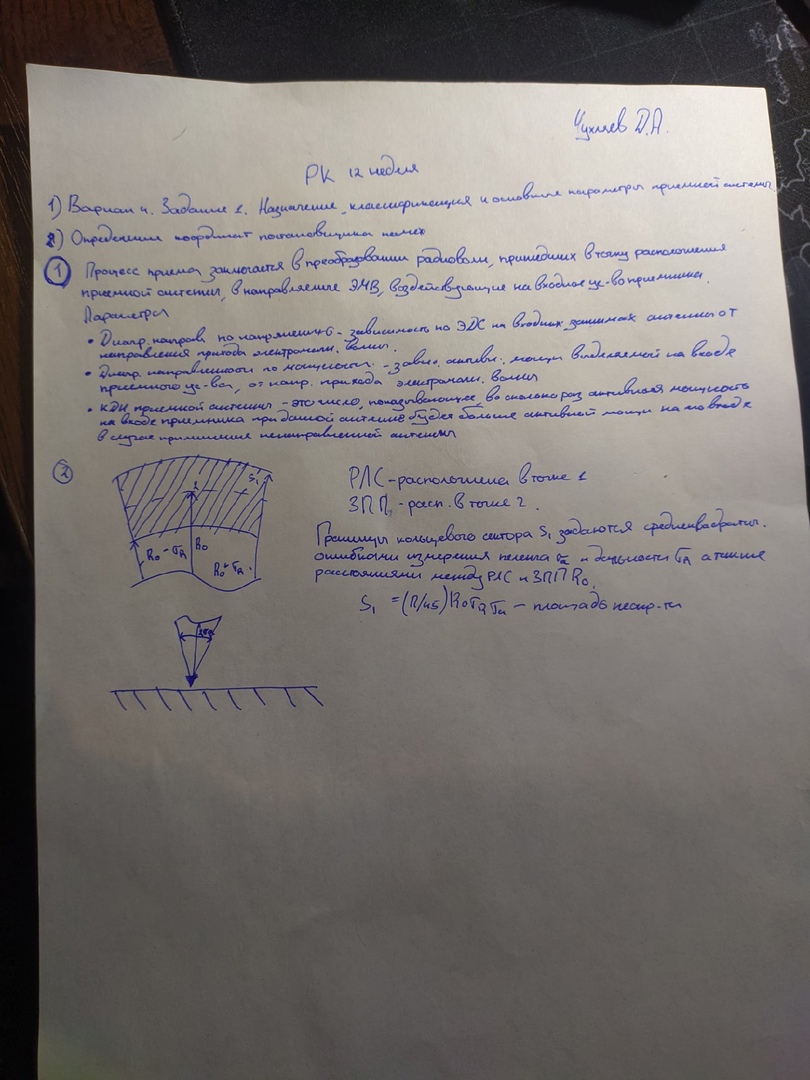 Чухляев Д.А.
РК 12 неделя
1) Вариант 4. Задание 1. Назначение, классификация и основные параметры приемной антенны
2) Определение координат постановщика помех
1 Процесс приема заключается в преобразовании радиоволн, пришедших в точку расположения
приемной антенны, в направляемые ЭМВ, воздействующие на входное уc-во приемника.
Параметры
• Диагр. направл по напряжению - зависимость по ЭДС на входных зажимах антенны от
направления прихода электромагн. волны.
• Диагр. направленности по мощности. - завис. активн. мощн выделяемой на входе
приемного ус-ва, от напр. прихода электромагн. волны
• КДН приемной антенны - это число, показывающее, во сколько раз активная мощность
на входе приемника при данной антенне будет больше активной мощн на его входе
в случае применения ненаправленной антенны
2
S₁
R₀ - σд
R₀
R₀ + σд
РЛС - расположена в точке 1
ЗПП - расп. в точке 2.
Границы кольцевого сектора S₁ задаются среднеквадратич.
ошибками измерения пеленга и дальности σд а также
расстояниями между РЛС и ЗПП R₀.
S₁ = (П/45) R₀ σд σп - площадь